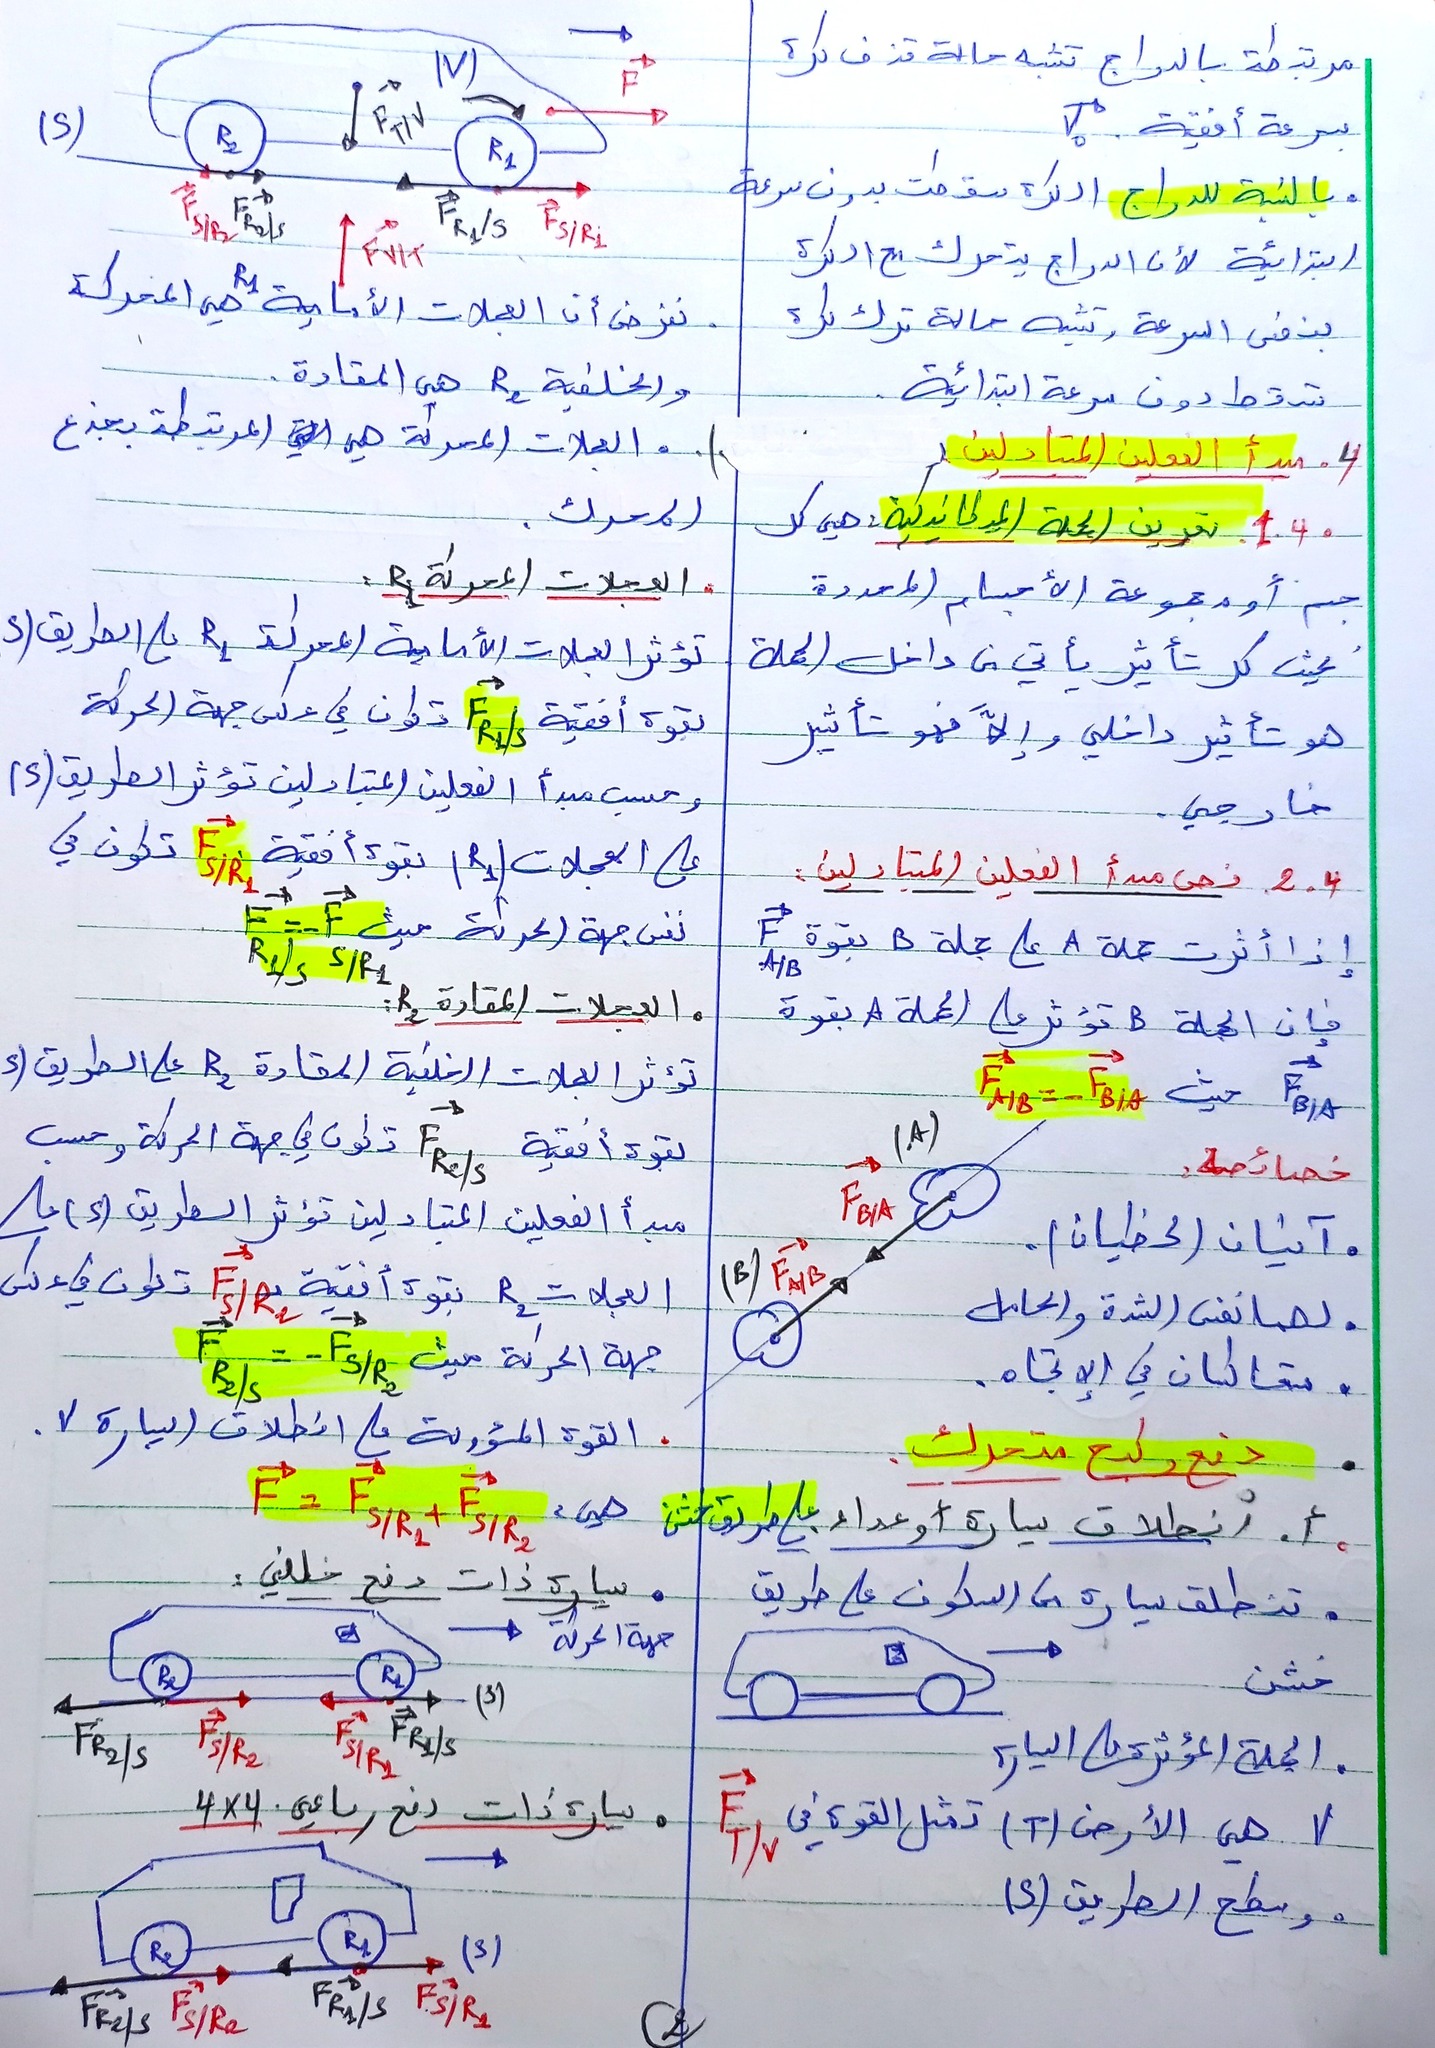 مرتبطة بالدراج تشبه حالة قذف كرة
بسرعة أفقية V₀.
• بالنسبة للدراج الكرة سقطت بدون سرعة
ابتدائية لأن الدراج يتحرك مع الكرة
بنفس السرعة وتشبه حالة ترك كرة
تسقط دون سرعة ابتدائية.
4. مبدأ الفعلين المتبادلين:
1.4. تعريف الجملة الميكانيكية: هي كل
جسم أو مجموعة الأجسام المحددة
بحيث كل تأثير يأتي من داخل الجملة
هو تأثير داخلي وإلاّ فهو تأثير
خارجي.
2.4. نص مبدأ الفعلين المتبادلين:
إذا أثرت جملة A على جملة B بقوة F⃗ A/B
فإن الجملة B تؤثر على الجملة A بقوة
F⃗ B/A حيث F⃗ A/B = -F⃗ B/A
خصائصه:
• آنيان (لحظيان).
• لهما نفس الشدة والحامل
• متعاكسان في الإتجاه.
(A)
F⃗ B/A
(B) F⃗ A/B
• دفع وكبح متحرك.
أ. إنطلاق سيارة أو عداء على طريق خشن
• تنطلق سيارة من السكون على طريق
خشن
• الجملة المؤثرة على السيارة
V هي الأرض (T) تمثل القوة في F⃗ T/V
• وسطح الطريق (S)
(V)
F⃗
(S)
R₂
F⃗ T/V
R₁
F⃗ S/R₂
F⃗ R₂/S
F⃗ R₁/S
F⃗ S/R₁
F⃗ V/T
• نفرض أن العجلات الأمامية R₁ هي المحركة
والخلفية R₂ هي المقادة.
• العجلات المحركة هي المرتبطة بجذع
المحرك.
• العجلات المحركة R₁:
تؤثر العجلات الأمامية المحركة R₁ على الطريق (S
بقوة أفقية F⃗ R₁/S تكون في عكس جهة الحركة
وحسب مبدأ الفعلين المتبادلين تؤثر الطريق (S)
على العجلات (R₁) بقوة أفقية F⃗ S/R₁ تكون في
نفس جهة الحركة حيث F⃗ R₁/S = -F⃗ S/R₁
• العجلات المقادة R₂:
تؤثر العجلات الخلفية المقادة R₂ على الطريق (S
بقوة أفقية F⃗ R₂/S تكون في جهة الحركة وحسب
مبدأ الفعلين المتبادلين تؤثر الطريق (S) على
العجلات R₂ بقوة أفقية F⃗ S/R₂ تكون في عكس
جهة الحركة حيث F⃗ R₂/S = -F⃗ S/R₂
• القوة المسؤولة على انطلاق السيارة V.
هي: F⃗ = F⃗ S/R₁ + F⃗ S/R₂
• سيارة ذات دفع خلفي:
جهة الحركة
R₂
R₁
(S)
F⃗ R₂/S
F⃗ S/R₂
F⃗ S/R₁
F⃗ R₁/S
• سيارة ذات دفع رباعي 4x4
R₂
R₁
(S)
F⃗ R₂/S
F⃗ S/R₂
F⃗ R₁/S
F⃗ S/R₁
2